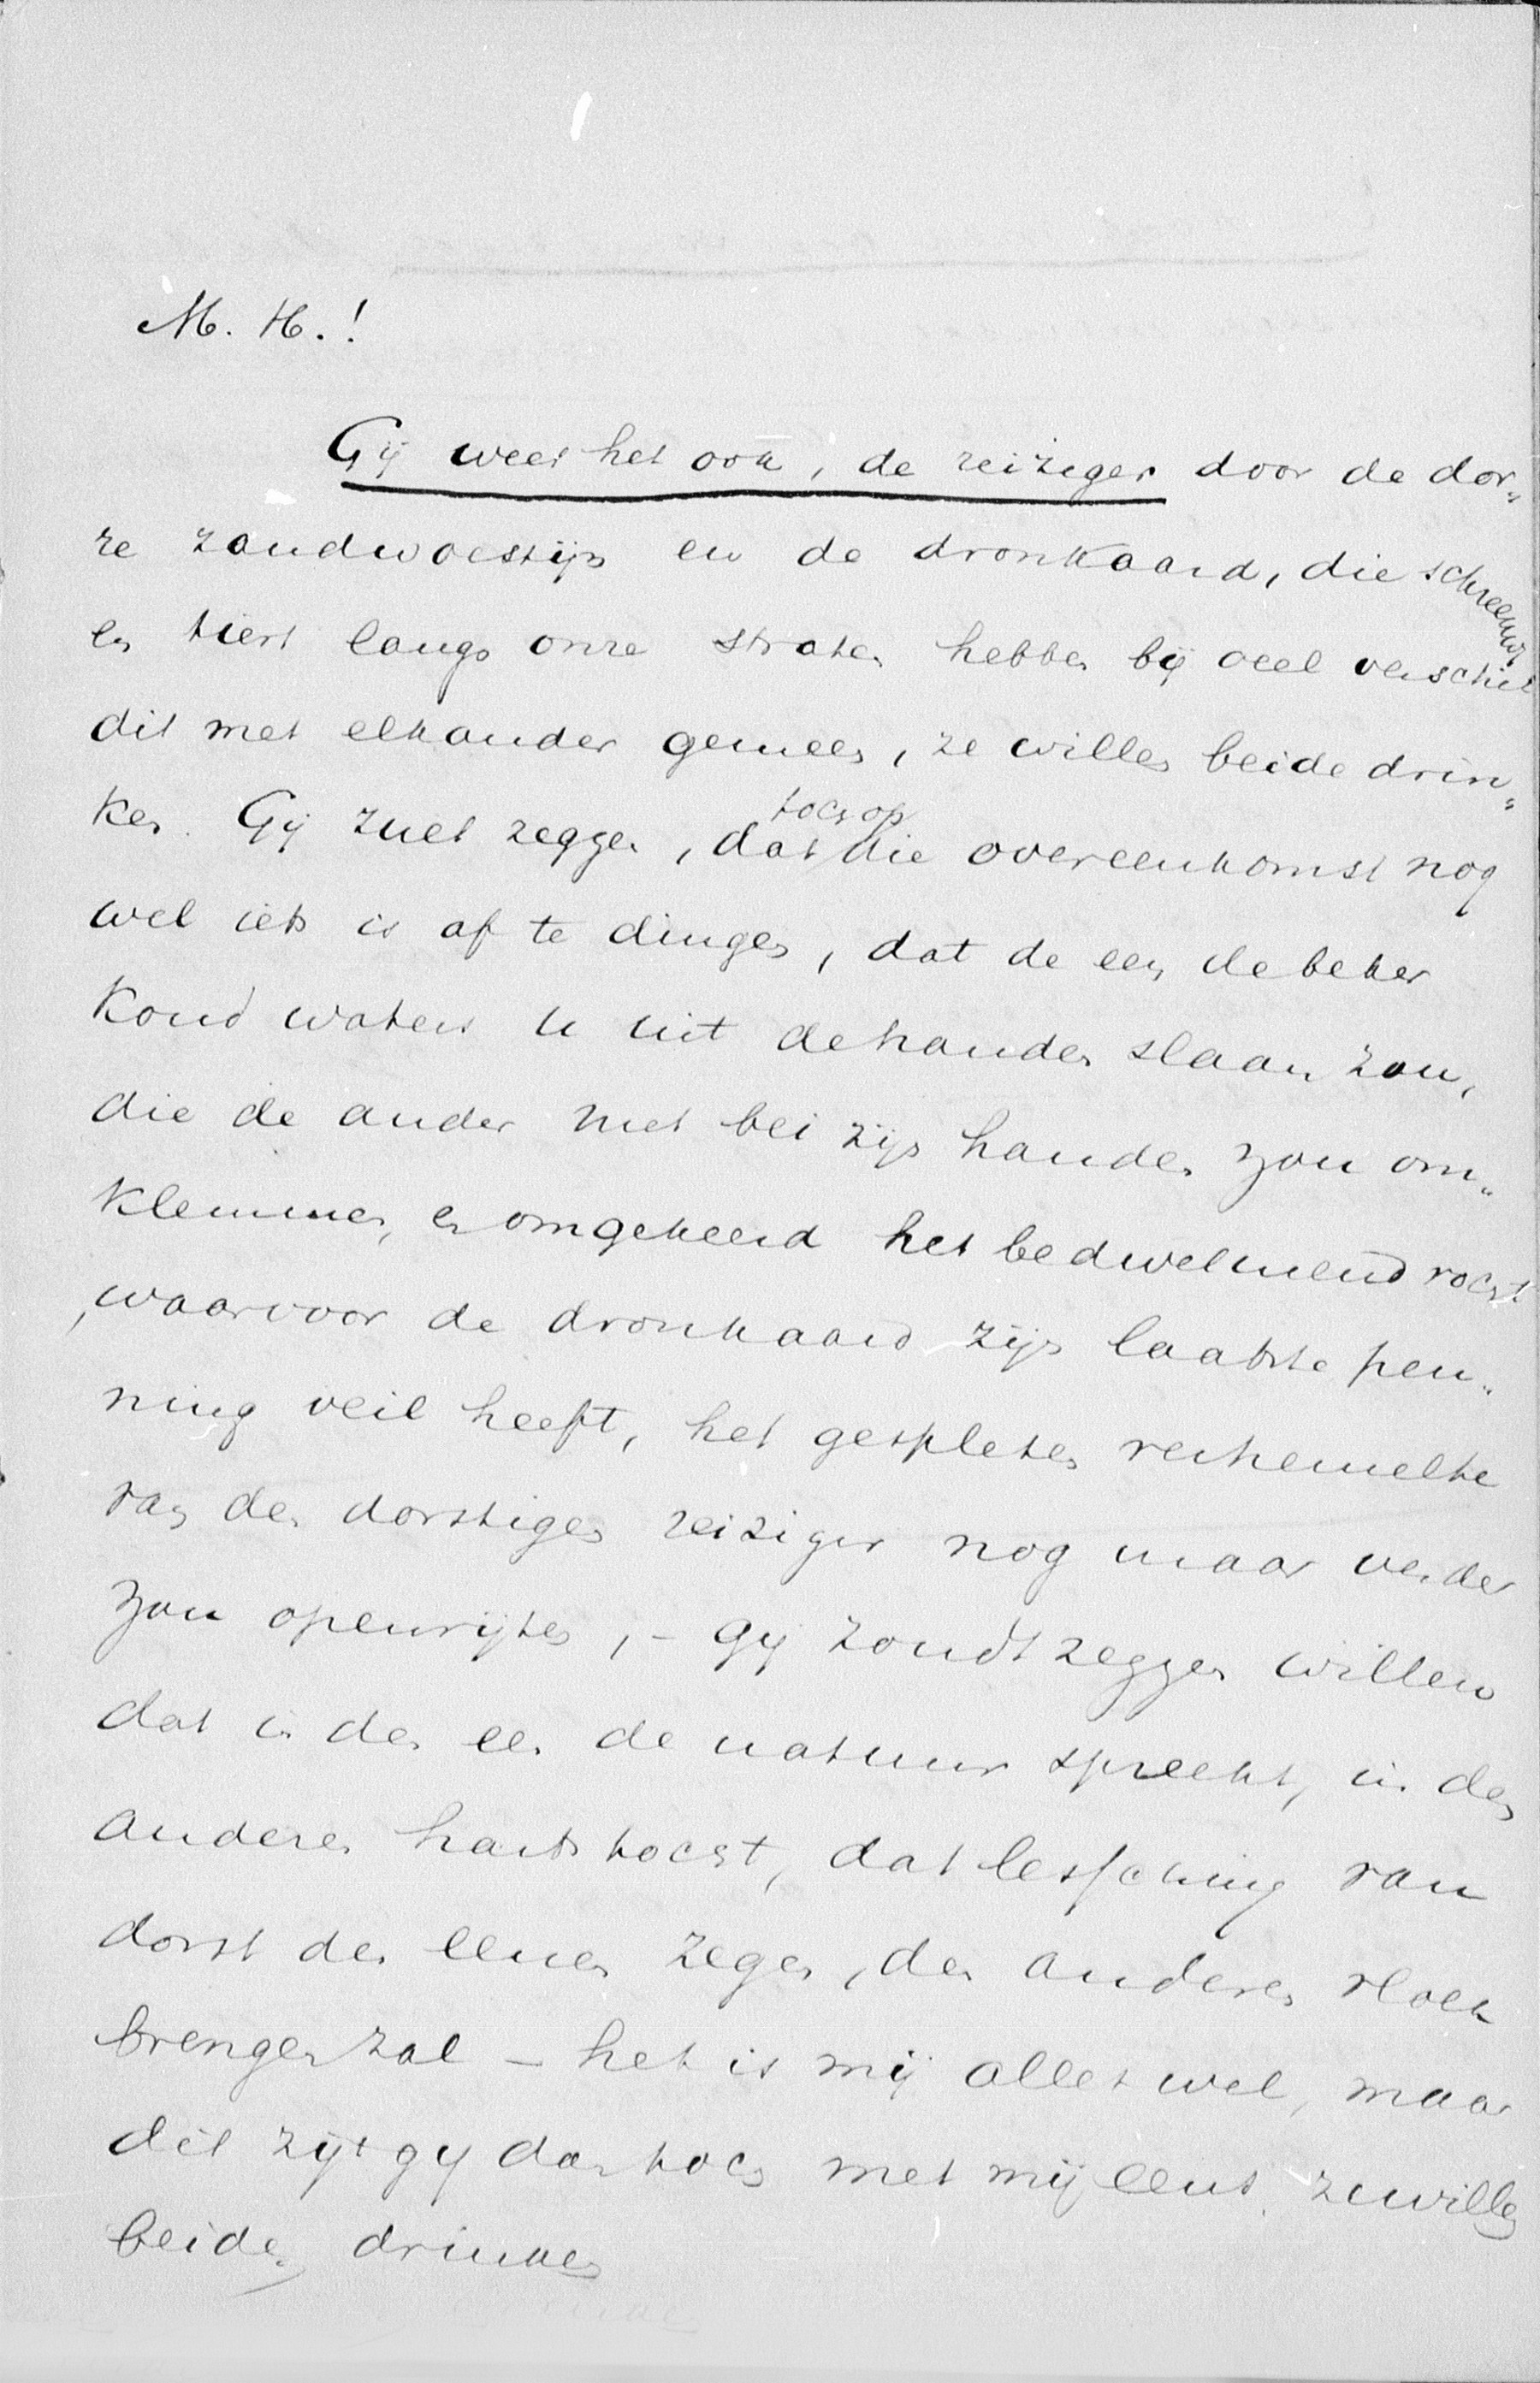 M. H.!
Gij weet het ook, de reiziger door de dor„
re zandwoestijn en de dronkaard, die schreeuwt
en tiert langs onze straten hebben bij veel verschil
dit met elkander gemeen, ze willen beide drin„
ken. Gij zult zeggen, dat toch op die overeenkomst nog
wel iets is af te dingen, dat de een de beker
koud waters u uit de handen slaan zou,
die de ander met bei zijn handen zou om„
klemmen, en omgekeerd het bedwelmend vocht
, waarvoor de dronkaard zijn laatste pen„
ning veil heeft, het gespleten verhemelte
van den dorstigen reiziger nog maar verder
zou openrijten, – gij zoudt zeggen willen
dat in den een de natuur spreekt, in den
anderen hartstocht, dat lessching van
dorst den eenen zegen, den anderen vloek
brengen zal – het is mij alles wel, maar
dit zijt gij dan toch met mij eens, ze willen
beiden drinken